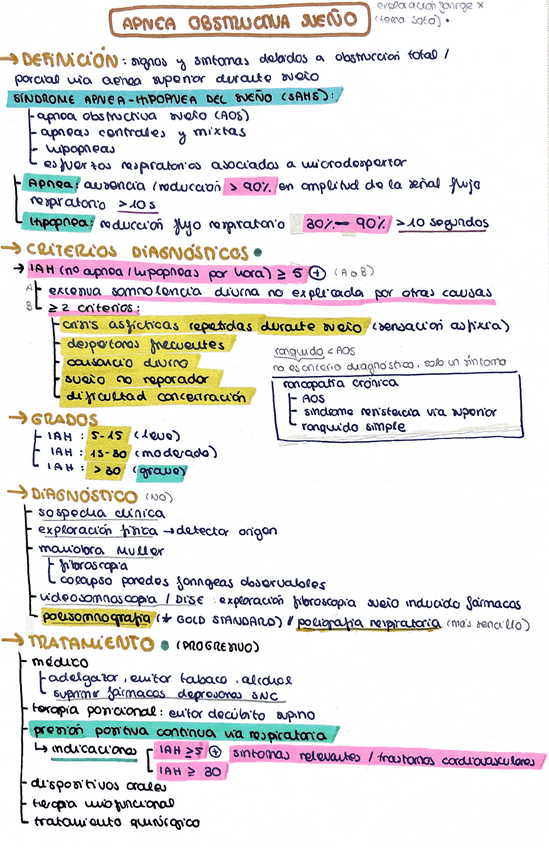 APNEA OBSTRUCTIVA SUEÑO
exploración faringe x
(tema soto) •
→ DEFINICIÓN: signos y síntomas debidos a obstrucción total /
parcial vía aérea superior durante sueño
SÍNDROME APNEA-HIPOPNEA DEL SUEÑO (SAHS):
apnea obstructiva sueño (AOS)
apneas centrales y mixtas
hipopneas
esfuerzos respiratorios asociados a microdespertar
Apnea: ausencia / reducción > 90% en amplitud de la señal flujo
respiratorio >10 s
Hipopnea: reducción flujo respiratorio 30% - 90% >10 segundos
→ CRITERIOS DIAGNÓSTICOS •
→ IAH (no apnea / hipopneas por hora) ≥ 5 + (A o B)
A excesiva somnolencia diurna no explicada por otras causas
B ≥ 2 criterios:
crisis asfícticas repetidas durante sueño (sensación asfixia)
despertares frecuentes
cansancio diurno
sueño no reparador
dificultad concentración
ronquido < AOS
no es criterio diagnóstico, solo un síntoma
roncopatía crónica
AOS
síndrome resistencia vía superior
ronquido simple
→ GRADOS
IAH : 5-15 (leve)
IAH : 15-30 (moderado)
IAH : > 30 (grave)
→ DIAGNÓSTICO (NO)
sospecha clínica
exploración física → detectar origen
maniobra Muller
fibroscopia
colapso paredes faríngeas observables
videosomnoscopia / DISE: exploración fibroscopia sueño inducido fármacos
polisomnografía (* GOLD STANDARD) // poligrafía respiratoria (más sencillo)
→ TRATAMIENTO • (PROGRESIVO)
médico
adelgazar, evitar tabaco, alcohol
suprimir fármacos depresores SNC
terapia posicional: evitar decúbito supino
presión positiva continua vía respiratoria
↳ indicaciones
IAH ≥5 + síntomas relevantes / trastornos cardiovasculares
IAH ≥ 30
dispositivos orales
terapia miofuncional
tratamiento quirúrgico